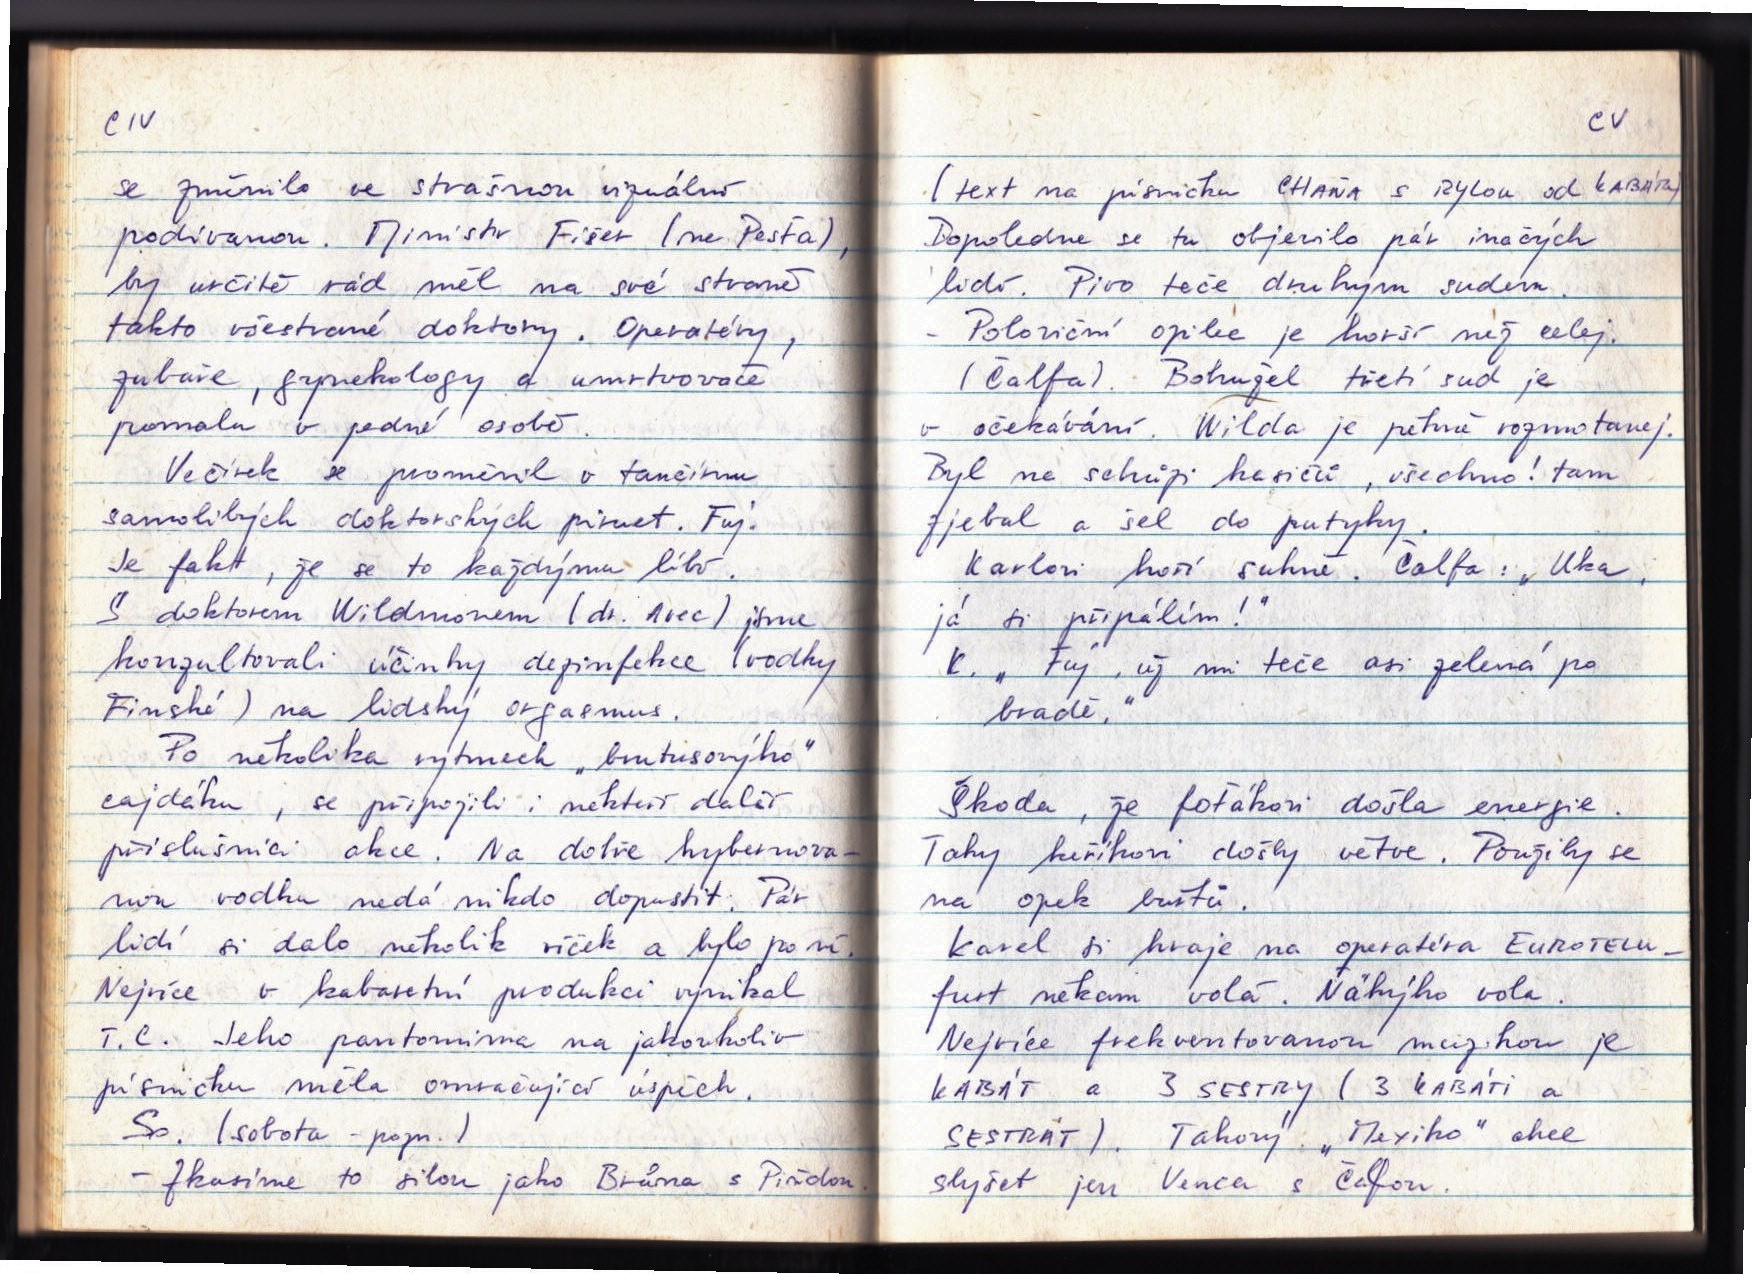 CIV
se změnilo ve strašnou vizuální
podívanou. Ministr Fišer (ne Pešťa),
by určitě rád měl na své straně
takto všestrané doktory. Operatéry,
zubaře, gynekology a umrtvovače
pomalu v jedné osobě.
Večírek se proměnil v tančírnu
samolibých doktorských piruet. Fuj.
Je fakt, že se to každýmu líbí.
S doktorem Wildmonem (dr. Avec) jsme
konzultovali účinky dezinfekce (vodky
Finské) na lidský orgasmus.
Po několika rytmech „brutusovýho"
cajdáku, se připojili i někteří další
příslušníci akce. Na dobře hybernova-
nou vodku nedá nikdo dopustit. Pár
lidí si dalo několik víček a bylo po ní.
Nejvíce v kabaretní produkci vynikal
T.C. Jeho pantomima na jakoukoliv
písničku měla omračující úspěch.
So. (sobota - pozn.)
- Zkusíme to silou jako Brůna s Piňdou.
CV
(text na písničku CHAŇA s RYLOU od KABÁTŮ)
Dopoledne se tu objevilo pár inačých
lidí. Pivo teče druhým sudem.
- Poloviční opilec je horší než celej.
(Čalfa). Bohužel třetí sud je
v očekávání. Wilda je pětně rozmotanej.
Byl na schůzi hasičů, všechno! tam
zjebal a šel do putyky.
Karlovi hoří sukně. Čalfa: „Uka,
já si připálím!"
K. „Fuj, už mi teče asi zelená po
bradě."
Škoda, že foťákovi došla energie.
Taky keříkovi došly větve. Použily se
na opek buřtů.
Karel si hraje na operatéra EUROTELU -
furt někam volá. Nákýho vola.
Nejvíce frekventovanou muzikou je
KABÁT a 3 SESTRY (3 KABÁTI a
SESTRÁT). Takový „Mexiko" chce
slyšet jen Venca s Čalfou.